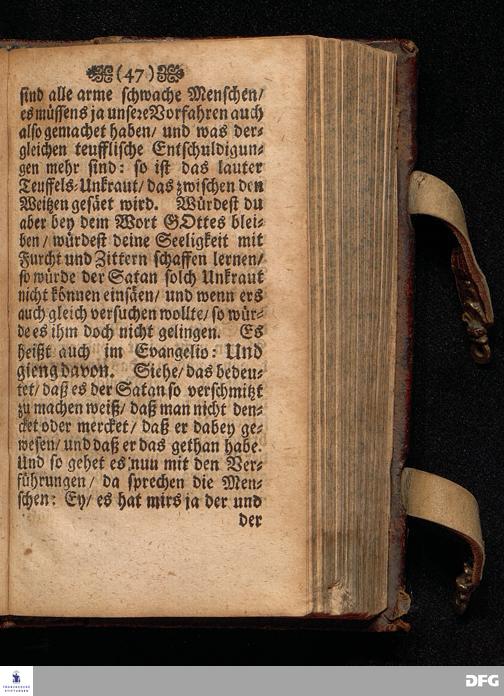 (47)
sind alle arme schwache Menschen/
es müssens ja unsere Vorfahren auch
also gemachet haben/ und was der-
gleichen teufflische Entschuldigun-
gen mehr sind: so ist das lauter
Teuffels-Unkraut/ das zwischen den
Weitzen gesäet wird. Würdest du
aber bey dem Wort GOttes blei-
ben/ würdest deine Seeligkeit mit
Furcht und Zittern schaffen lernen/
so würde der Satan solch Unkraut
nicht können einsäen/ und wenn ers
auch gleich versuchen wollte/ so wür-
de es ihm doch nicht gelingen. Es
heißt auch im Evangelio: Und
gieng davon. Siehe/ das bedeu-
tet/ daß es der Satan so verschmitzt
zu machen weiß/ daß man nicht den-
cket oder mercket/ daß er dabey ge-
wesen/ und daß er das gethan habe.
Und so gehet es nun mit den Ver-
führungen/ da sprechen die Men-
schen: Ey/ es hat mirs ja der und
der
FRANCKESCHE
STIFTUNGEN
DFG